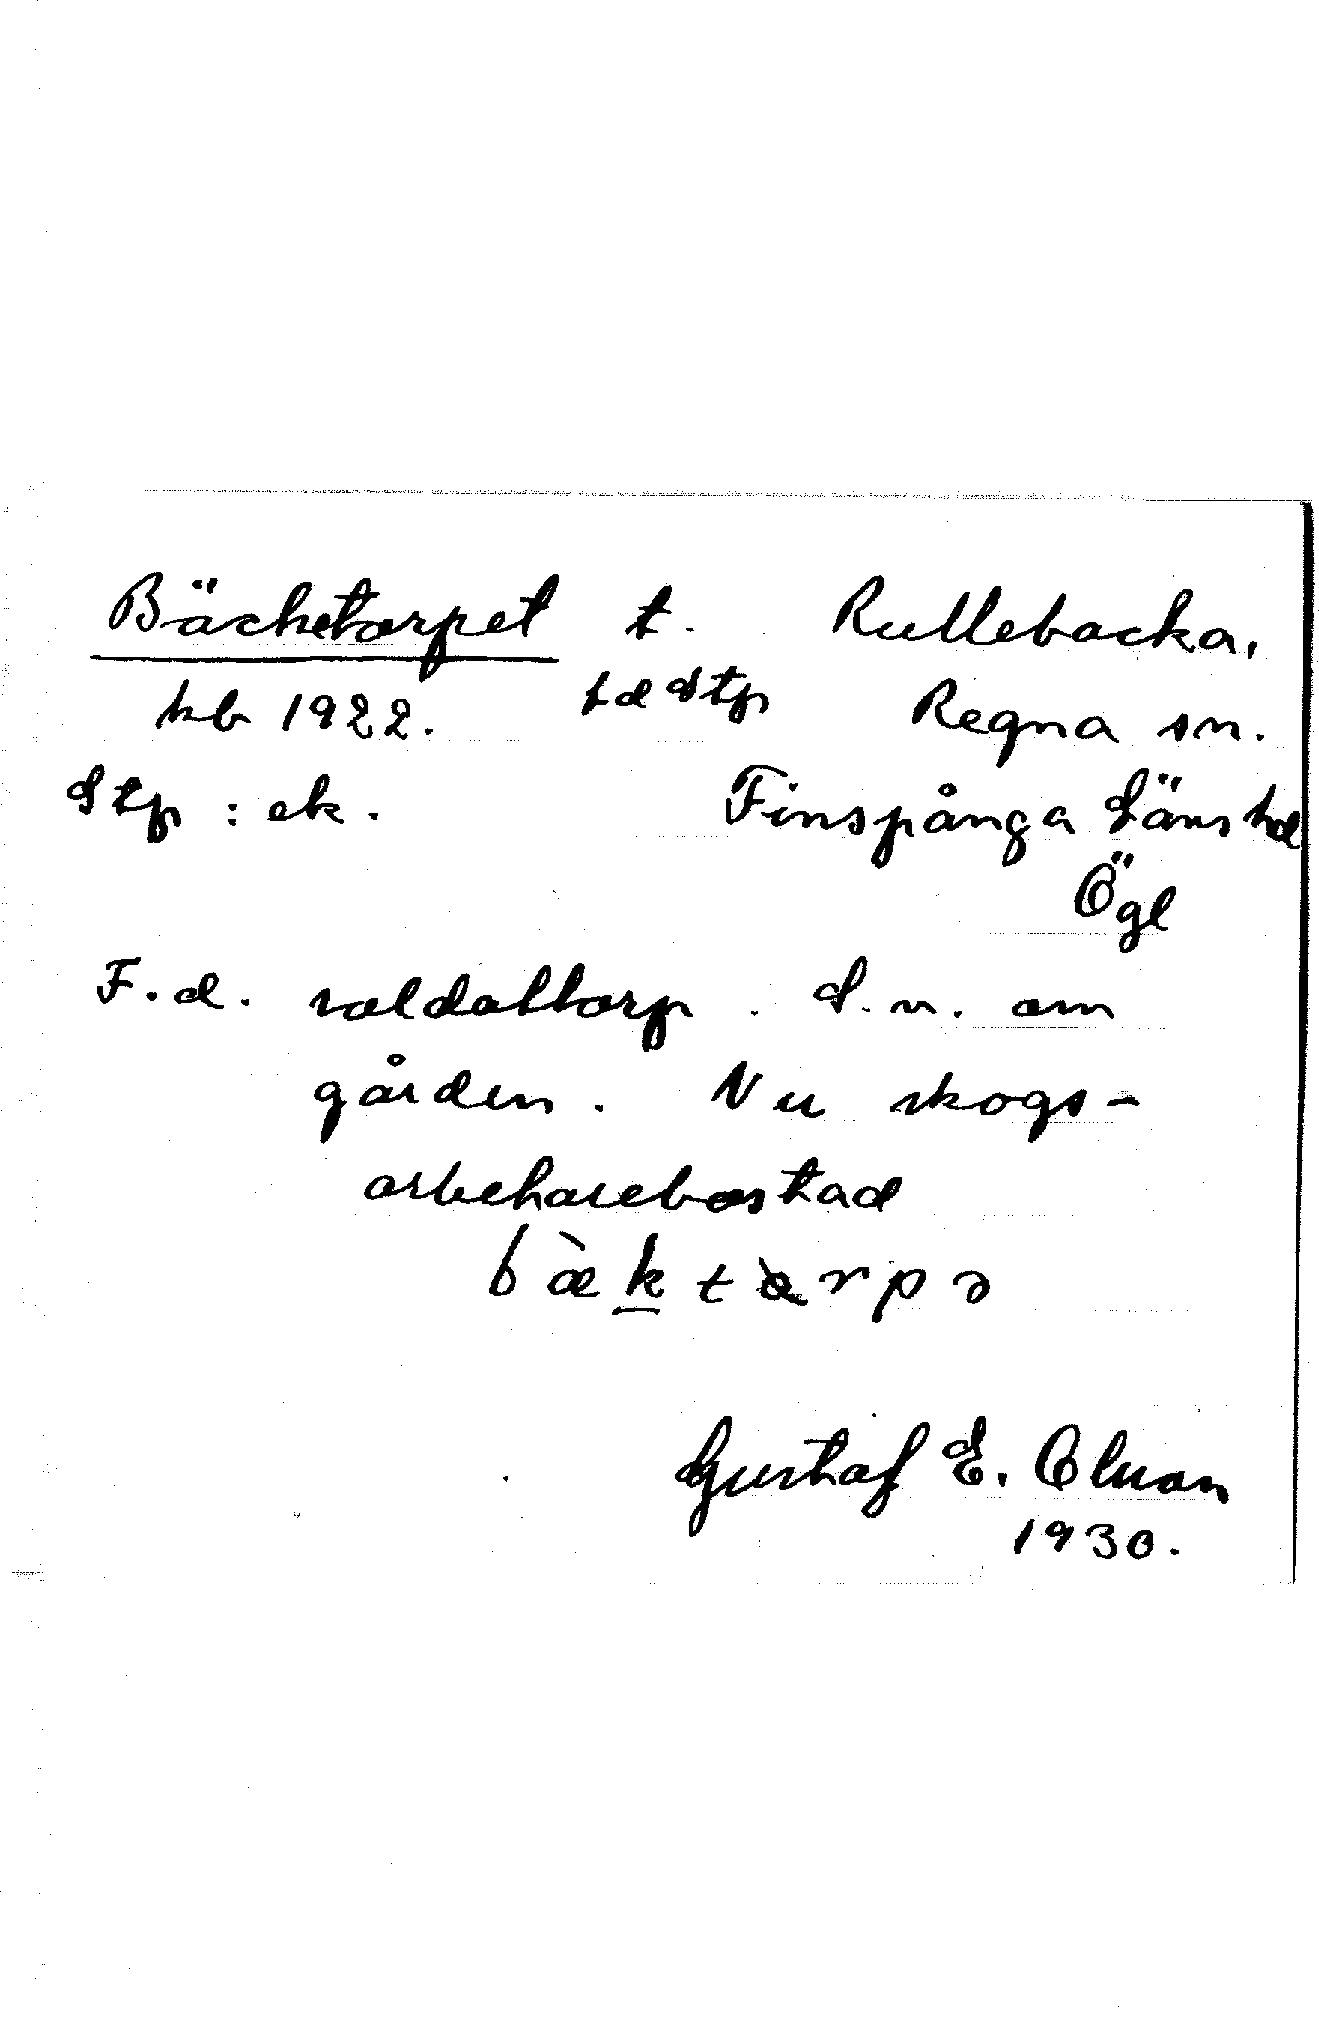 Bäcketorpet t. Rullebacka,
kb 1922. Regna sn.
Stp : ek. Finspånga Läns hd
Ögl
F.d. soldattorp. S.v. om
gården. Nu skogs-
arbetarebostad
bæ̀ktɑ̀rpə
Gustaf E. Olsson
1930.